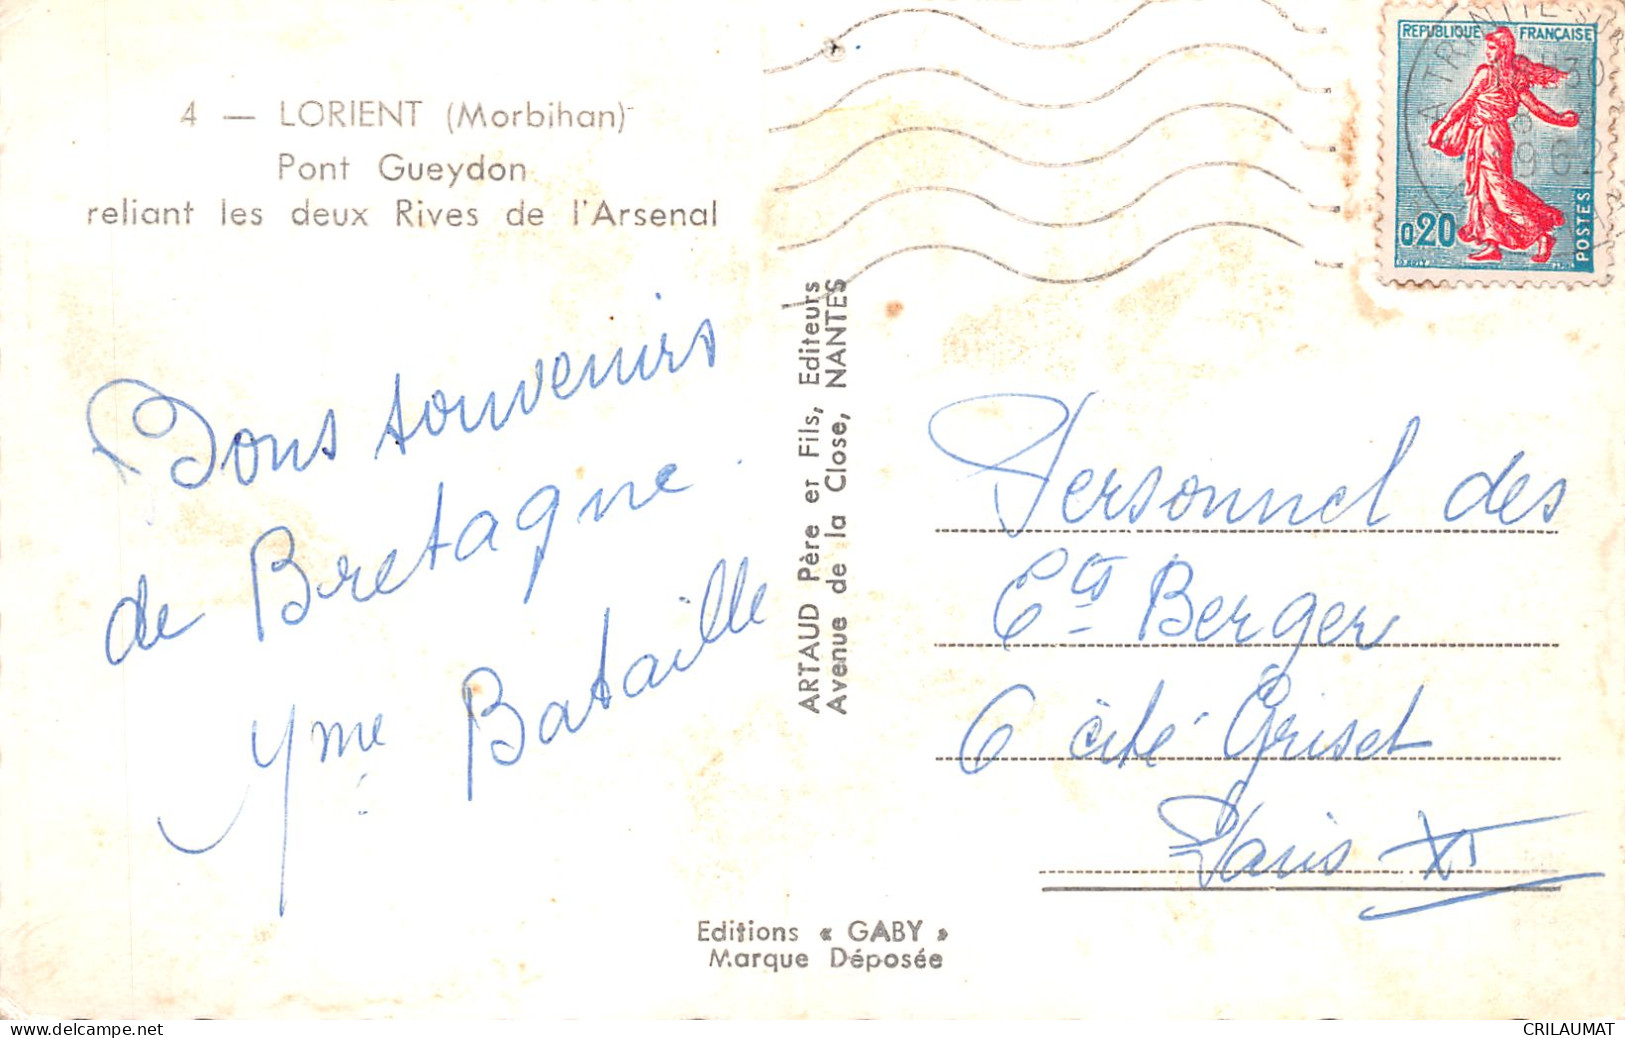 4 — LORIENT (Morbihan)
Pont Gueydon
reliant les deux Rives de l'Arsenal
Bons souvenirs
de Bretagne.
Yme Bataille
ARTAUD Père et Fils, Editeurs
Avenue de la Close, NANTES
Editions « GABY »
Marque Déposée
REPUBLIQUE FRANÇAISE
0,20
POSTES
LA TRINITE SUR
30
1962
Personnel des
Ets Berger
6 cité Griset
Paris XI
www.delcampe.net
CRILAUMAT